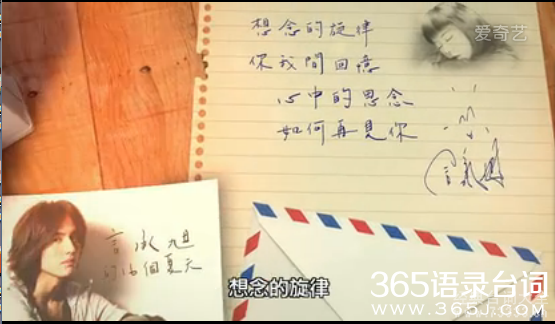 爱奇艺
想念的旋律
你我間回憶
心中的思念
如何再見你
言承旭
個夏天
想念的旋律
365语录台词
www.365j.com